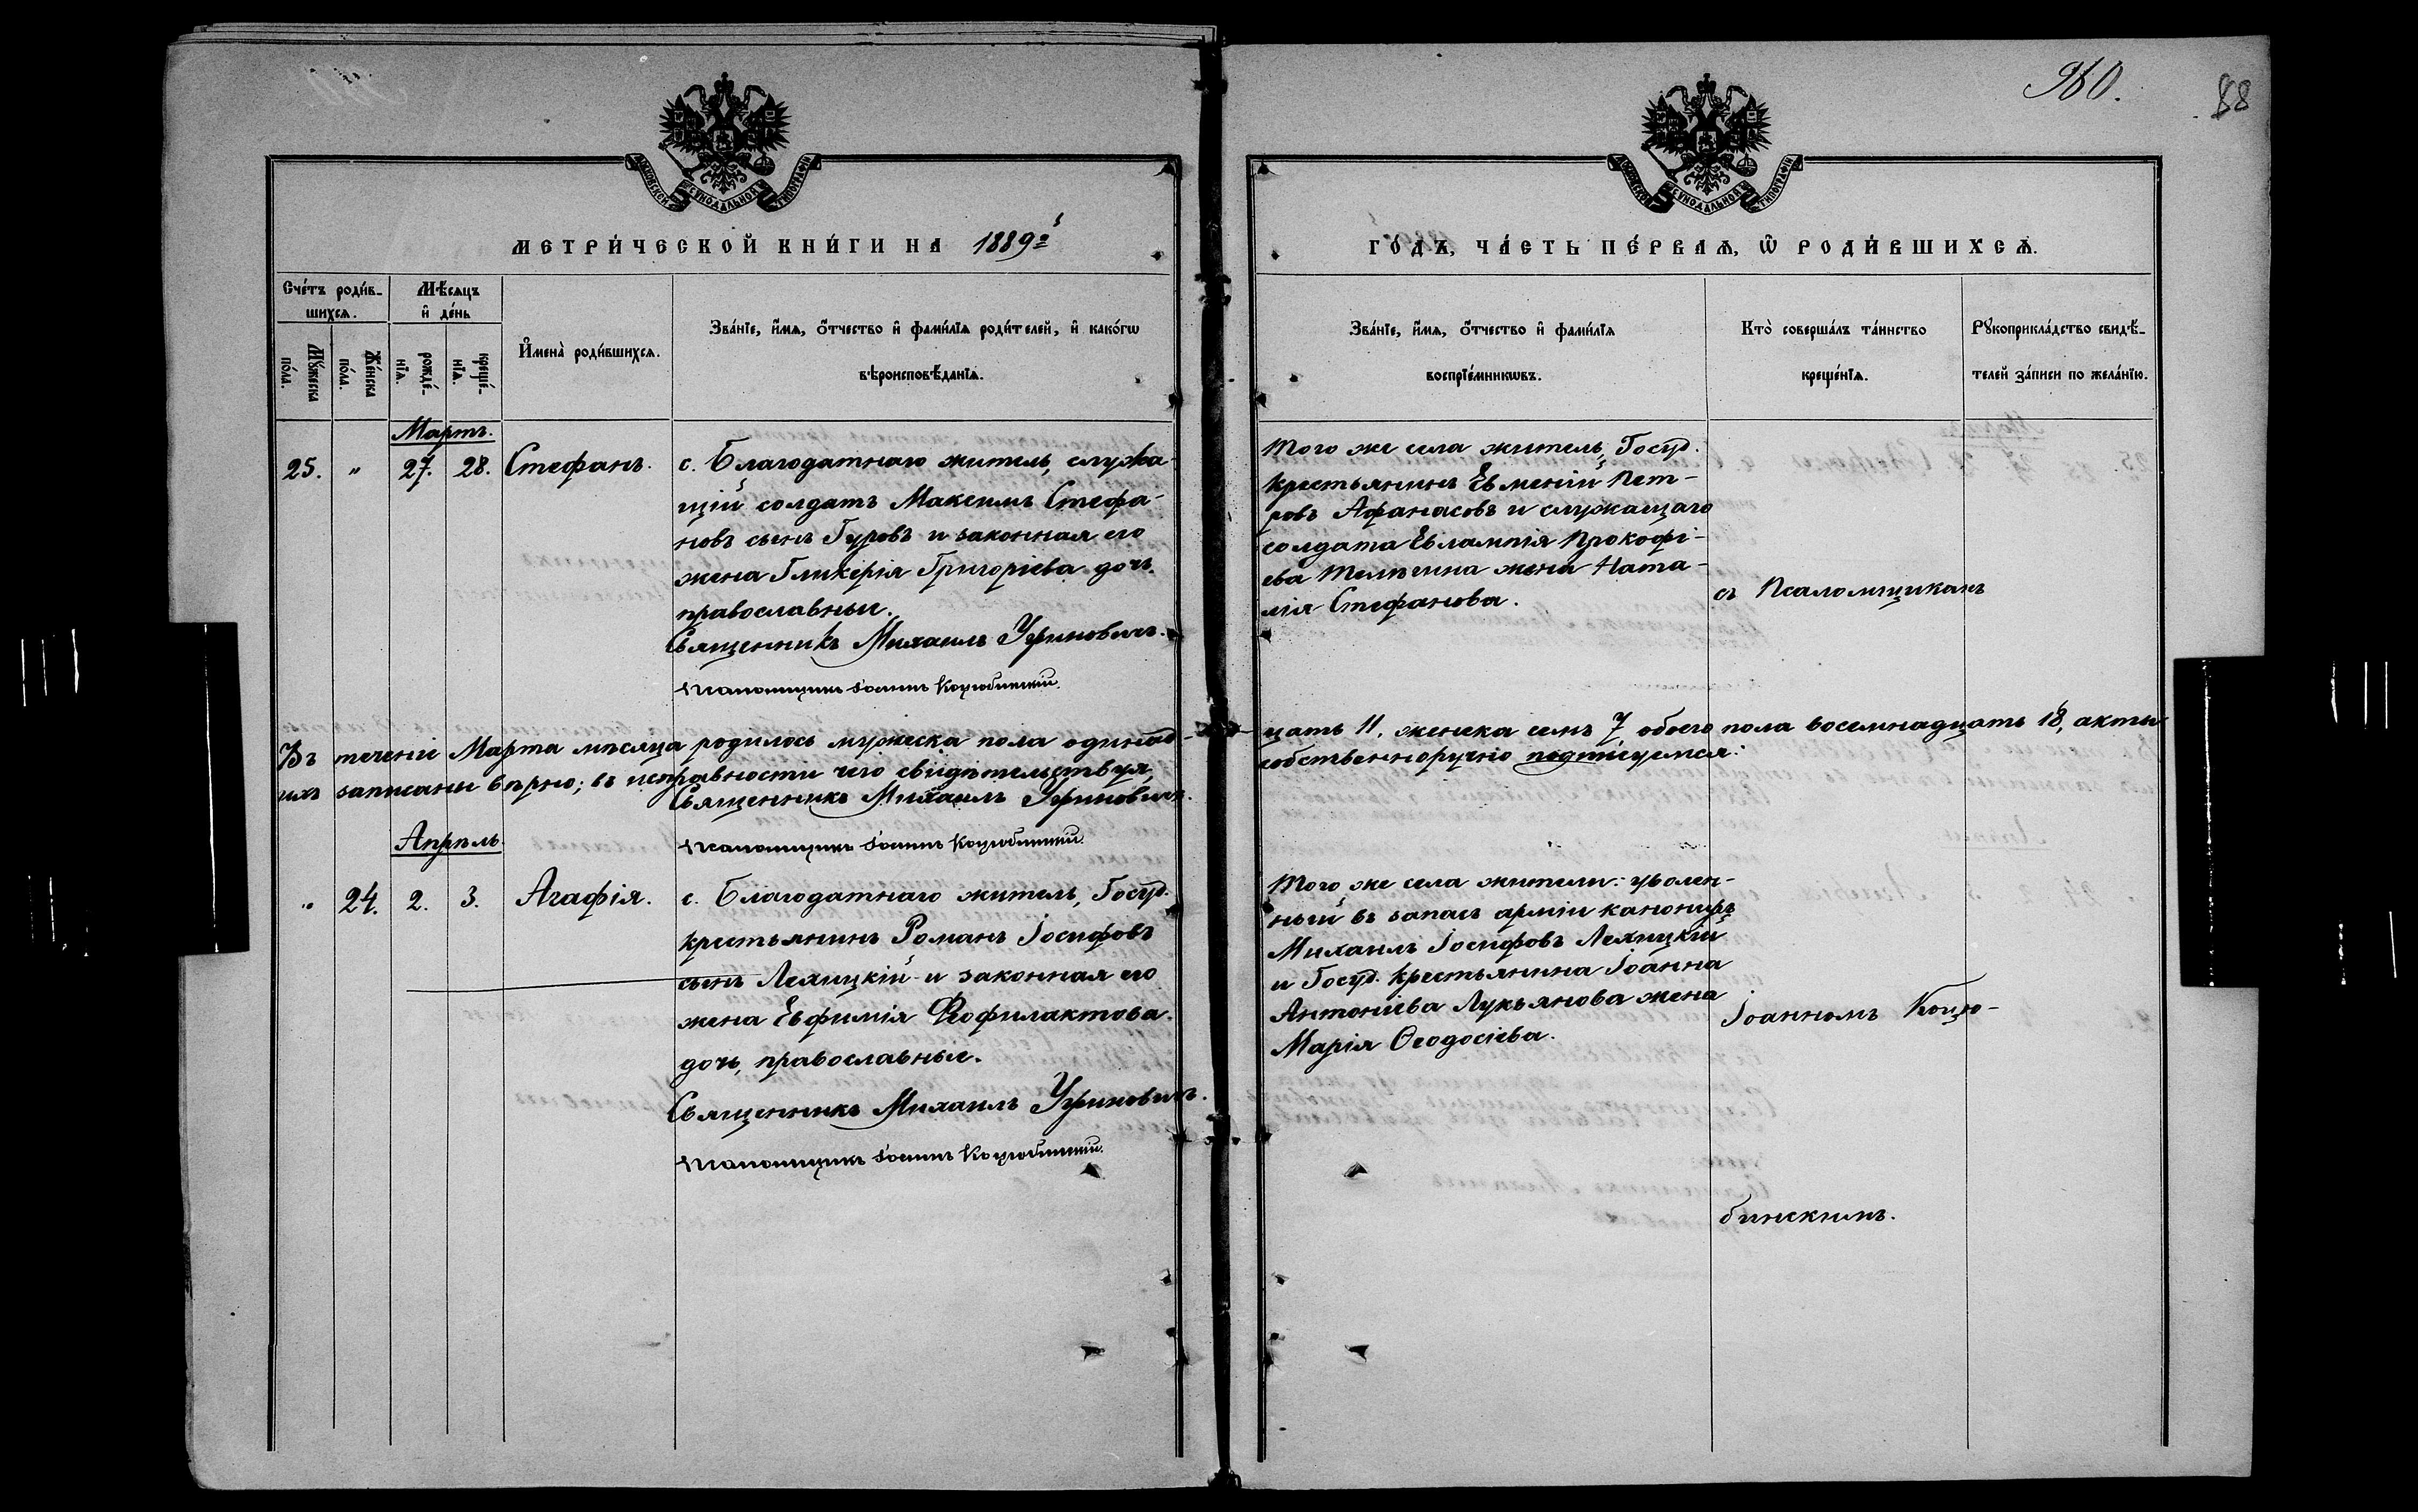 960.
88
МОСКОВСКОЙ СѴНОДАЛЬНОЙ ТИПОГРАФІИ
МОСКОВСКОЙ СѴНОДАЛЬНОЙ ТИПОГРАФІИ
МЕТРИ́ЧЕСКОЙ КНИ́ГИ НА 1889й
ГО́ДЪ, ЧА́СТЬ ПЕ́РВАѦ, Ѿ РОДИ́ВШИХСѦ.
Сче́тъ роди́в-
шихсѧ.
Мѣ́сѧцъ
и҆ де́нь
Мꙋ́жеска
по́ла.
Же́нска
по́ла.
рожде́-
нїѧ.
креще́-
нїѧ.
И҆мена̀ роди́вшихсѧ.
Зва́нїе, и҆́мѧ, о҆́тчество и҆ фами́лїѧ роди́телей, и҆ како́гѡ
вѣроисповѣ́данїѧ.
Зва́нїе, и҆́мѧ, о҆́тчество и҆ фами́лїѧ
воспрїе́мникѡвъ.
Кто̀ соверша́лъ та́инство
креще́нїѧ.
Рꙋкоприкла́дство свидѣ́-
телей за́писи по жела́нїю.
Мартъ.
25. " 27. 28. Стефанъ.
с. Благодатнаго житель, служа-
щій солдатъ Максимъ Стефа-
новъ сынъ Гуровъ и законная его
жена Гликерія Григоріева дочь.
православныи.
Священникъ Михаилъ Уриновичъ.
Псаломщикъ Іоаннъ Коцюбинскій.
Того же села житель, Госуд.
крестьянинъ Евменій Пет-
ровъ Афанасовъ и служащаго
солдата Евлампія Прокофі-
ева Телпеина жена Ната-
лія Стефанова.
съ Псаломщикомъ
Въ теченіе Марта мѣсяца родилось мужеска пола одинад-
цать 11. женска семъ 7 обоего пола восемнадцать 18, акты
ихъ записаны вѣрно; въ исправности чего свидѣтельствуя,
собственноручно подписуемся:
Священникъ Михаилъ Уриновичъ.
Псаломщикъ Іоаннъ Коцюбинскій.
Апрѣль.
" 24. 2. 3. Агафія.
с. Благодатнаго житель, Госуд.
крестьянинъ Романъ Іосифовъ
сынъ Лехицкій и законная его
жена Евфимія Феофилактова
дочь, православные.
Священникъ Михаилъ Уриновичъ.
Псаломщикъ Іоаннъ Коцюбинскій.
Того же села жители: уволен-
ный въ запасъ арміи канониръ
Михаилъ Іосифовъ Лехицкій
и Госуд. крестьянина Іоанна
Антоніева Лукьянова жена
Марія Ѳеодосіева.
Іоанномъ Коцю-
бинскимъ.